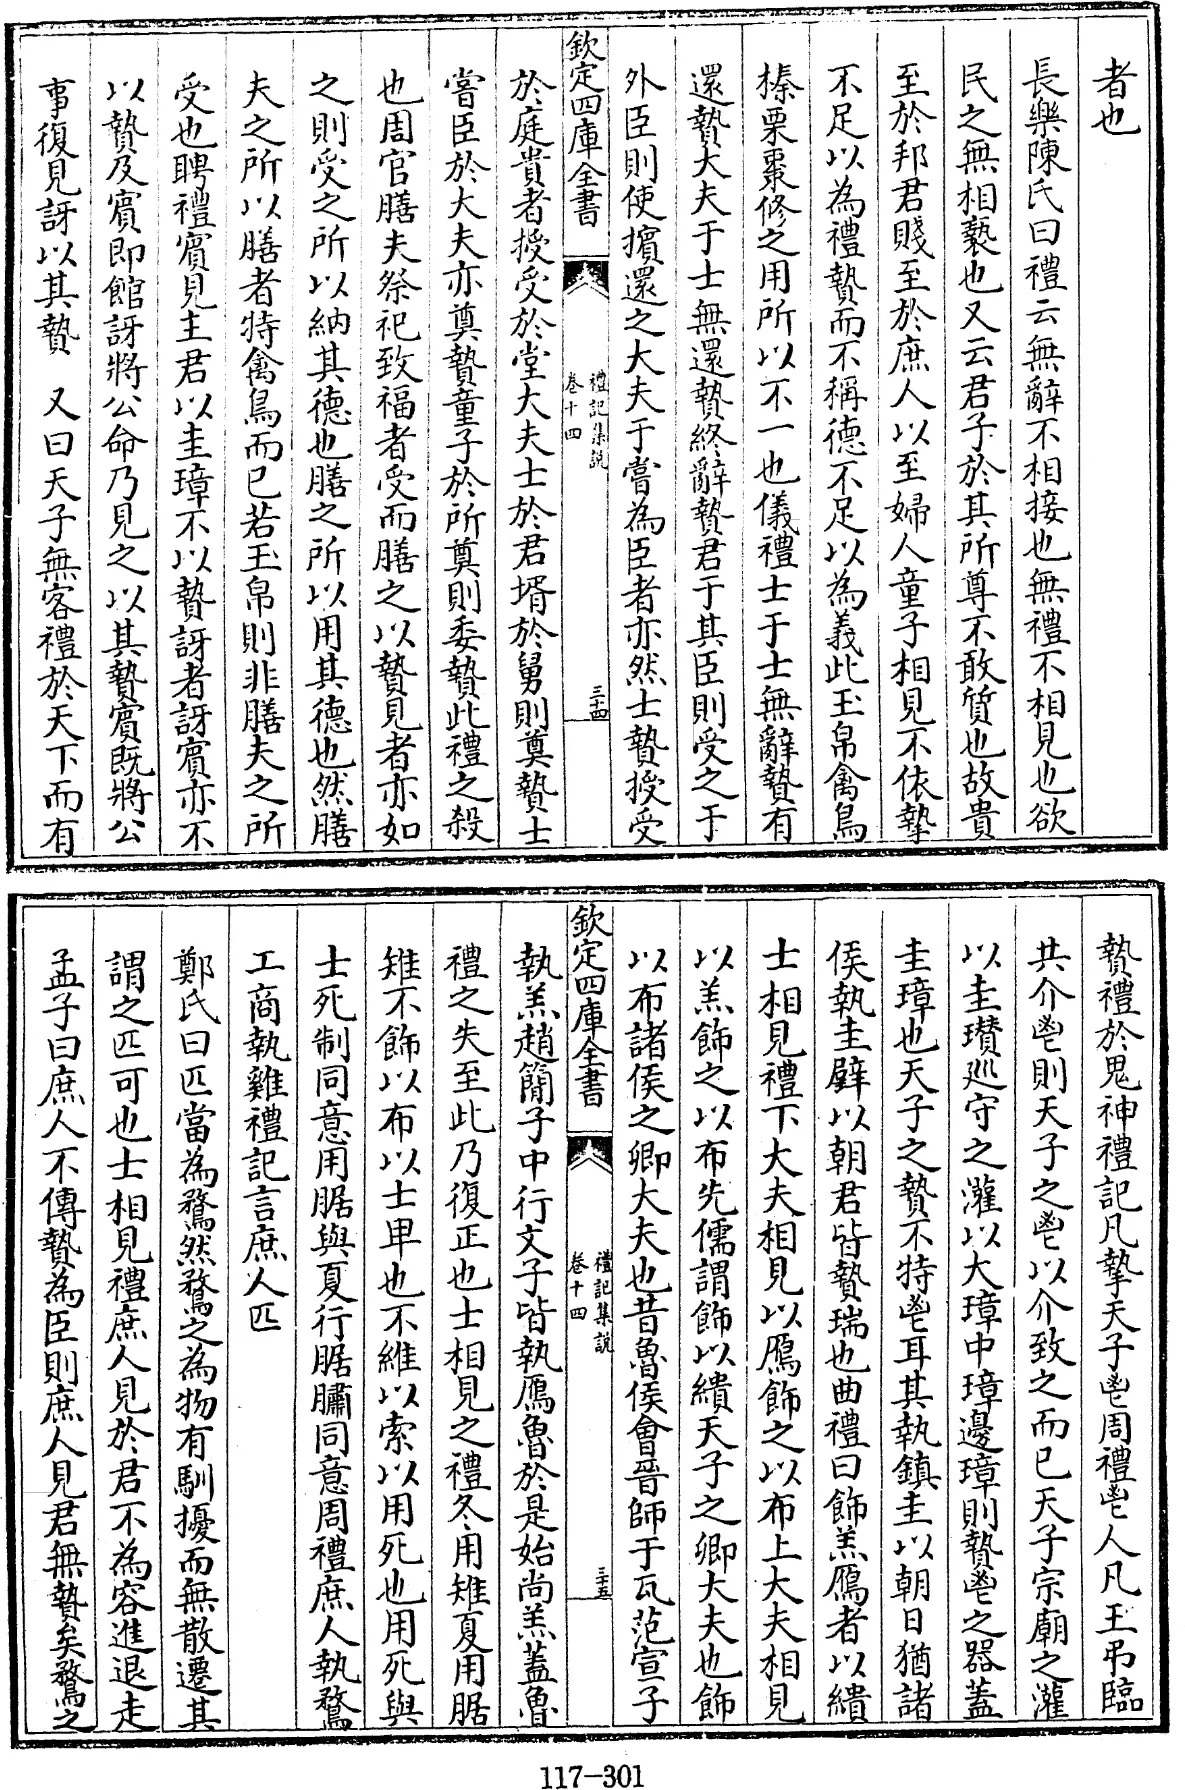 者也
長樂陳氏曰禮云無辭不相接也無禮不相見也欲
民之無相䙝也又云君子於其所尊不敢質也故貴
至於邦君賤至於庶人以至婦人童子相見不依摯
不足以為禮贄而不稱德不足以為義此玉帛禽鳥
榛栗棗脩之用所以不一也儀禮士于士無辭贄有
還贄大夫于士無還贄終辭贄君于其臣則受之于
外臣則使擯還之大夫于嘗為臣者亦然士贄授受
欽定四庫全書
禮記集說
卷十四
三十四
於庭貴者授受於堂大夫士於君壻於舅則奠贄士
嘗臣於大夫亦奠贄童子於所奠則委贄此禮之殺
也周官膳夫祭祀致福者受而膳之以贄見者亦如
之則受之所以納其德也膳之所以用其德也然膳
夫之所以膳者特禽鳥而已若玉帛則非膳夫之所
受也聘禮賓見主君以圭璋不以贄訝者訝賓亦不
以贄及賓即館訝將公命乃見之以其贄賓既將公
事復見訝以其贄 又曰天子無客禮於天下而有
贄禮於鬼神禮記凡摯天子鬯周禮鬯人凡王弔臨
共介鬯則天子之鬯以介致之而已天子宗廟之灌
以圭瓚廵守之灌以大璋中璋邊璋則贄鬯之器蓋
圭璋也天子之贄不特鬯耳其執鎮圭以朝日猶諸
侯執圭璧以朝君皆贄瑞也曲禮曰飾羔鴈者以繢
士相見禮下大夫相見以鴈飾之以布上大夫相見
以羔飾之以布先儒謂飾以繢天子之卿大夫也飾
以布諸侯之卿大夫也昔魯侯會晉師于瓦范宣子
欽定四庫全書
禮記集說
卷十四
三十五
執羔趙簡子中行文子皆執鴈魯於是始尚羔蓋魯
禮之失至此乃復正也士相見之禮冬用雉夏用腒
雉不飾以布以士卑也不維以索以用死也用死與
士死制同意用腒與夏行腒鱐同意周禮庶人執鶩
工商執雞禮記言庶人匹
鄭氏曰匹當為鶩然鶩之為物有馴擾而無散遷其
謂之匹可也士相見禮庶人見於君不為容進退走
孟子曰庶人不傳贄為臣則庶人見君無贄矣鶩之
117-301